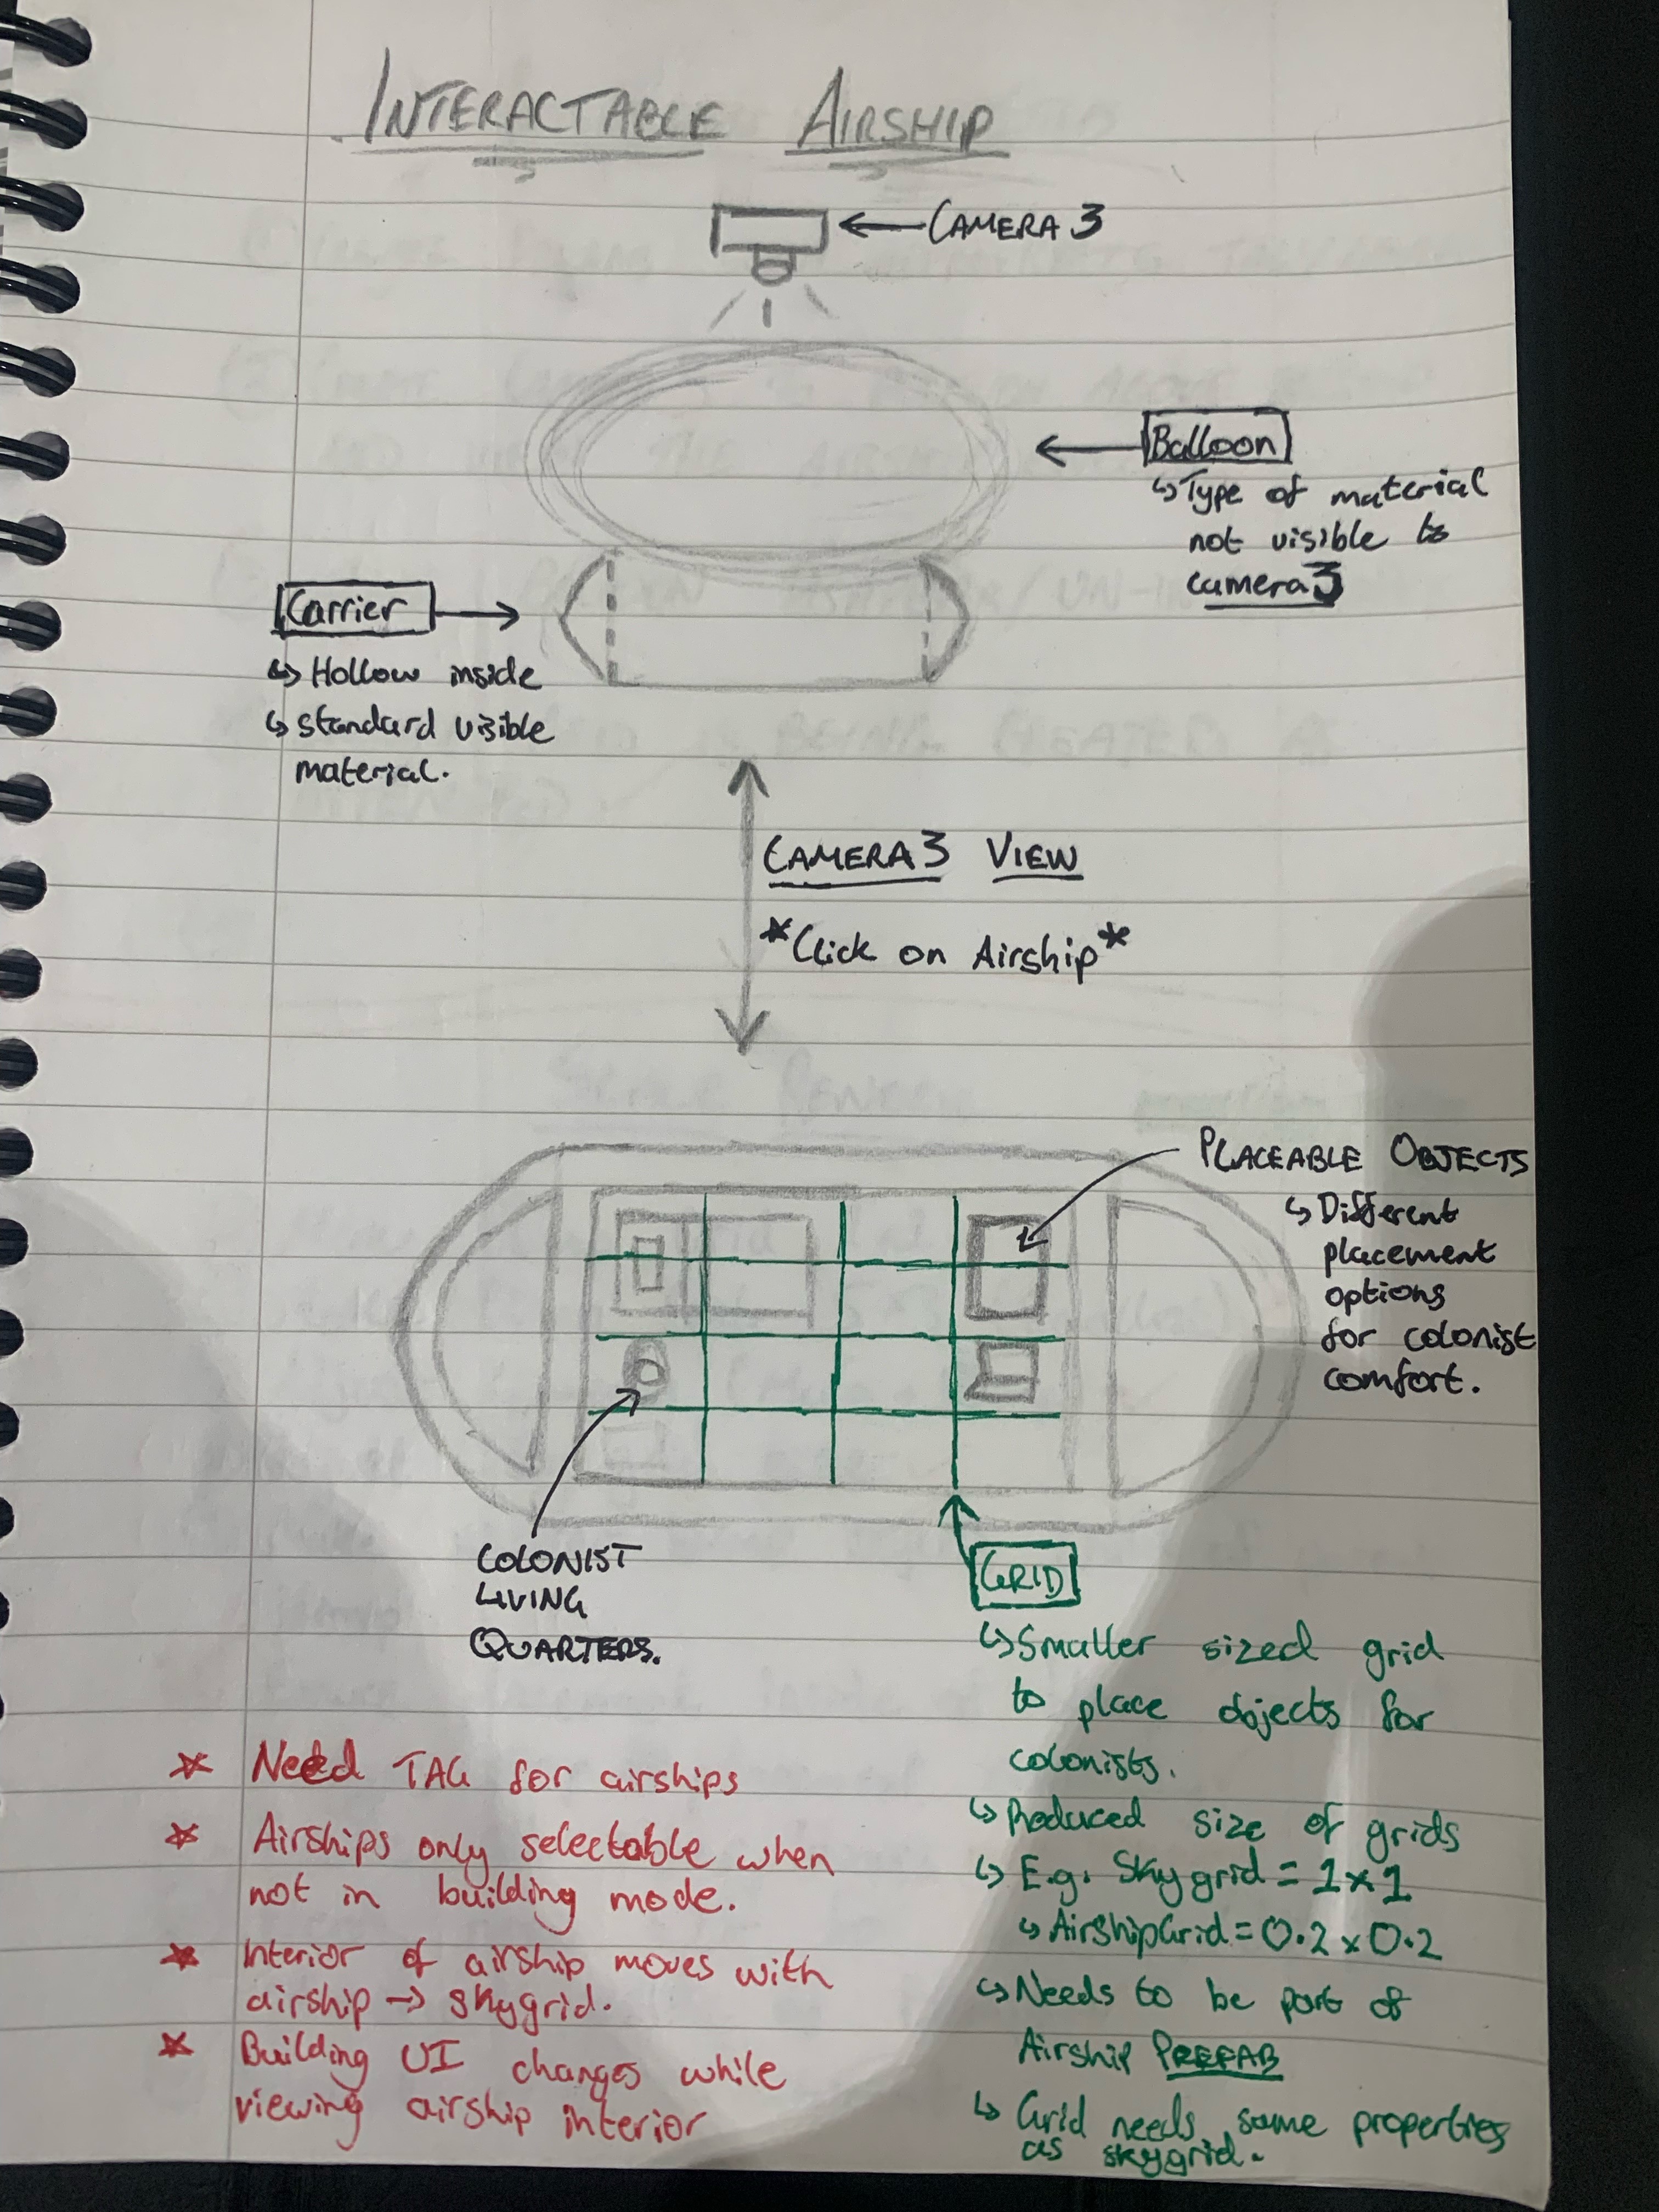 INTERACTABLE AIRSHIP
CAMERA 3
Balloon
↳ Type of material
not visible to
camera 3
Carrier
↳ Hollow inside
↳ standard visible
material.
CAMERA 3 VIEW
*Click on Airship*
PLACEABLE OBJECTS
↳ Different
placement
options
for colonist
comfort.
COLONIST
LIVING
QUARTERS.
GRID
↳ Smaller sized grid
to place objects for
colonists.
↳ Reduced size of grids
↳ E.g. Skygrid = 1x1
↳ AirshipGrid = 0.2 x 0.2
↳ Needs to be part of
Airship PREFAB
↳ Grid needs same properties
as skygrid.
* Need TAG for airships
* Airships only selectable when
not in building mode.
* Interior of airship moves with
airship → skygrid.
* Building UI changes while
viewing airship interior